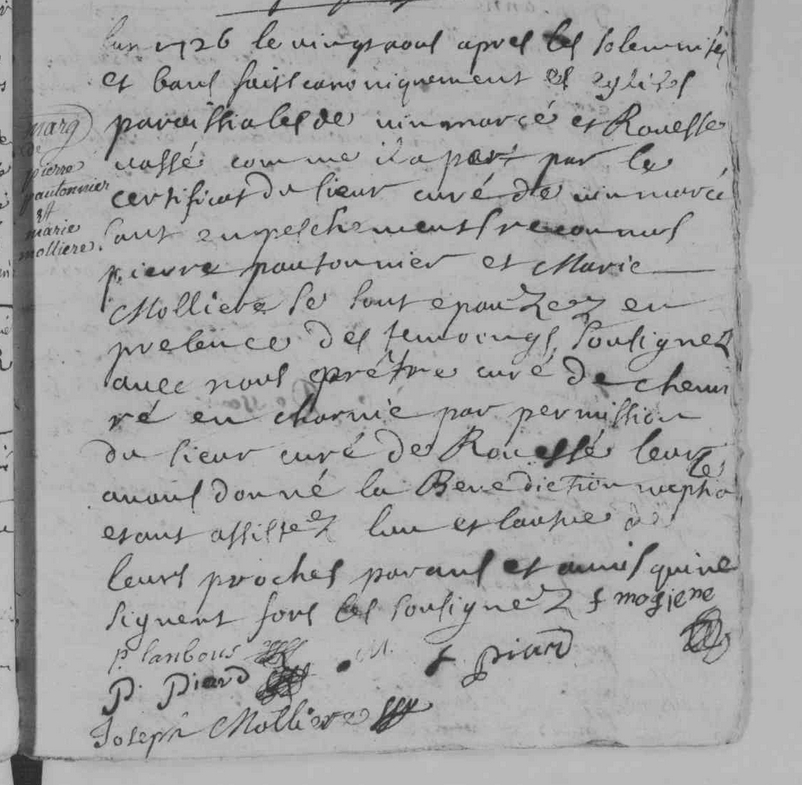 marg
de
pierre
pautonnier
et
marie
molliere.
lan 1726 le vingt aout apres les solemnités
et bans faits canoniquement es eglises
paroissiales de vinmarcé et Rouesse
vassé comme il apert par le
certificat du sieur curé de vinmarcé
sans empeschements reconnus
pierre pautonnier et Marie
Molliere se sont epouzez en
presence des temoings sousignez
avec nous prétre curé de chemi
ré en charnie par permission
du sieur curé de Rouessé leur
avons donné la Benediction nuptialle
etant assistez lun et lautre de
leurs proches parans et amis qui ne
signent fors les sousignez f mogiene
P. lanbous
P. Piard M. f piard
Joseph Molliere